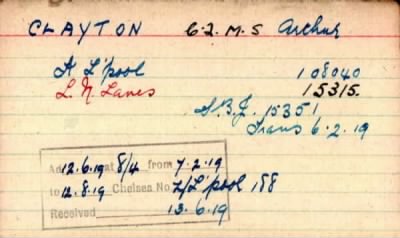 CLAYTON 62. M.S Arthur
A L'pool 108040
L. N. Lancs 15315.
S.B.J. 15351
Trans 6.2.19
12.6.19 8/4 from 7.2.19
to 12.8.19 Chelsea No. 2/L'pool 188
Received 13.6.19